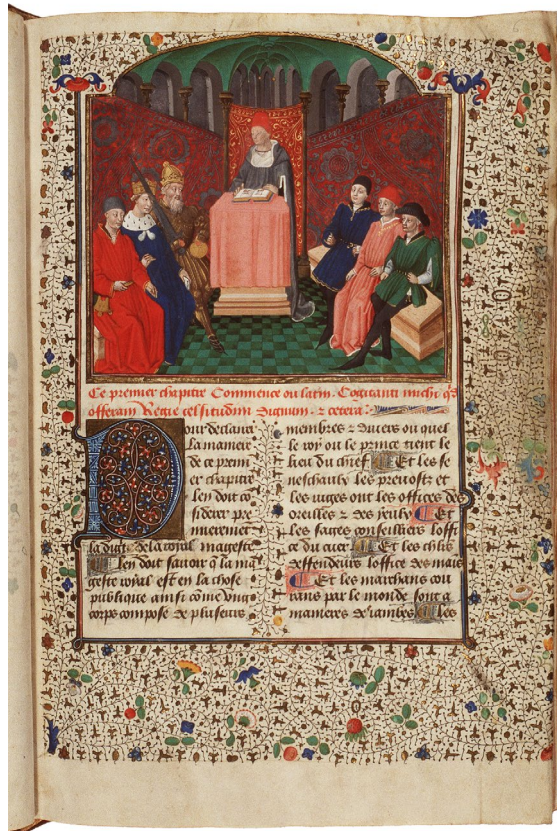 Ce premier chapitre Commence ou latin. Cogitanti michi qd
offeram Regie celsitudini dignum. ⁊ cetera
Pour declarer
la maniere
de ce premi
er chapitre
len doit co
siderer pre
mierement
la dig de la royal mageste
len doit sauoir q̄ la ma
geste royal est en la chose
publique ainsi cōme vng
corps compose de plusieurs
membres ⁊ diuers ou quel
le roy ou le prince tient le
lieu du chief Et les se
neschaulx les preuostz et
les iuges ont les offices des
oreilles ⁊ des yeulx Et
les sages conseilliers loffi
ce du cuer Et les chlrs
deffendeurs loffice des mais
Et les marchans cou
rans par le monde sont a
manieres de iambes les